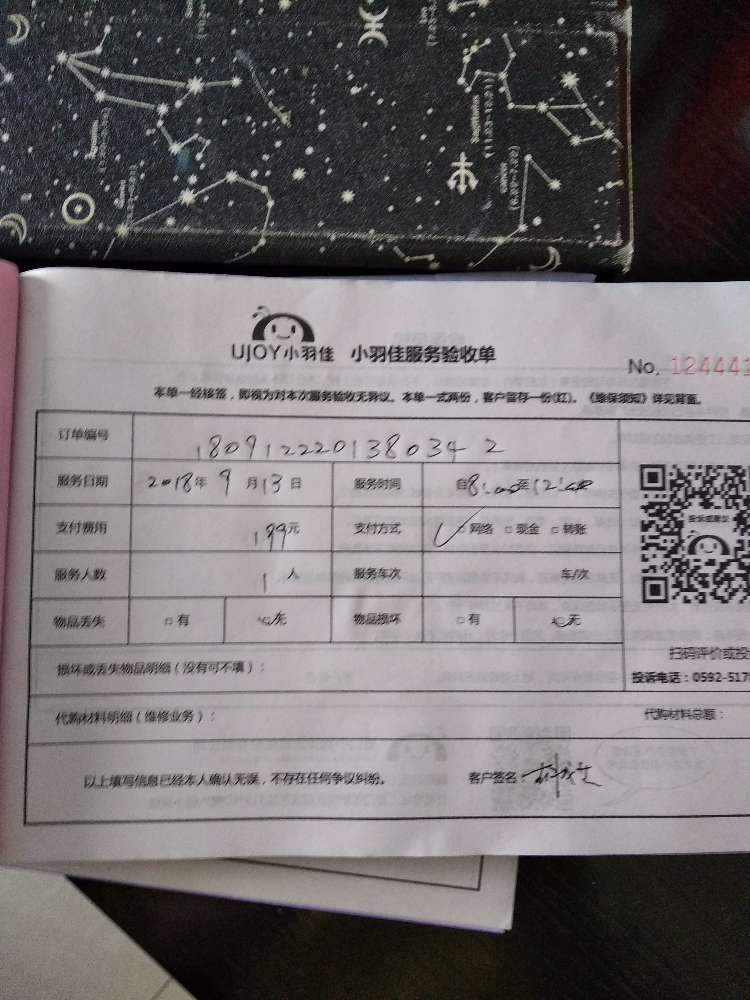 Sagittarius
UJOY小羽佳 小羽佳服务验收单
No. 124441
本单一经核签，即视为对本次服务验收无异议。本单一式两份，客户留存一份(红)。《维保须知》详见背面。
订单编号 180912220138034 2
服务日期 2018年9月13日 服务时间 自8:00至12:00
支付费用 199元 支付方式 ✓□网络 □现金 □转账
服务人数 1人 服务车次 车/次
物品丢失 □有 ☑无 物品损坏 □有 ☑无
投诉或建议
扫码评价或投
投诉电话：0592-517
损坏或丢失物品明细（没有可不填）：
代购材料明细（维修业务）： 代购材料总额：
以上填写信息已经本人确认无误，不存在任何争议纠纷。 客户签名：